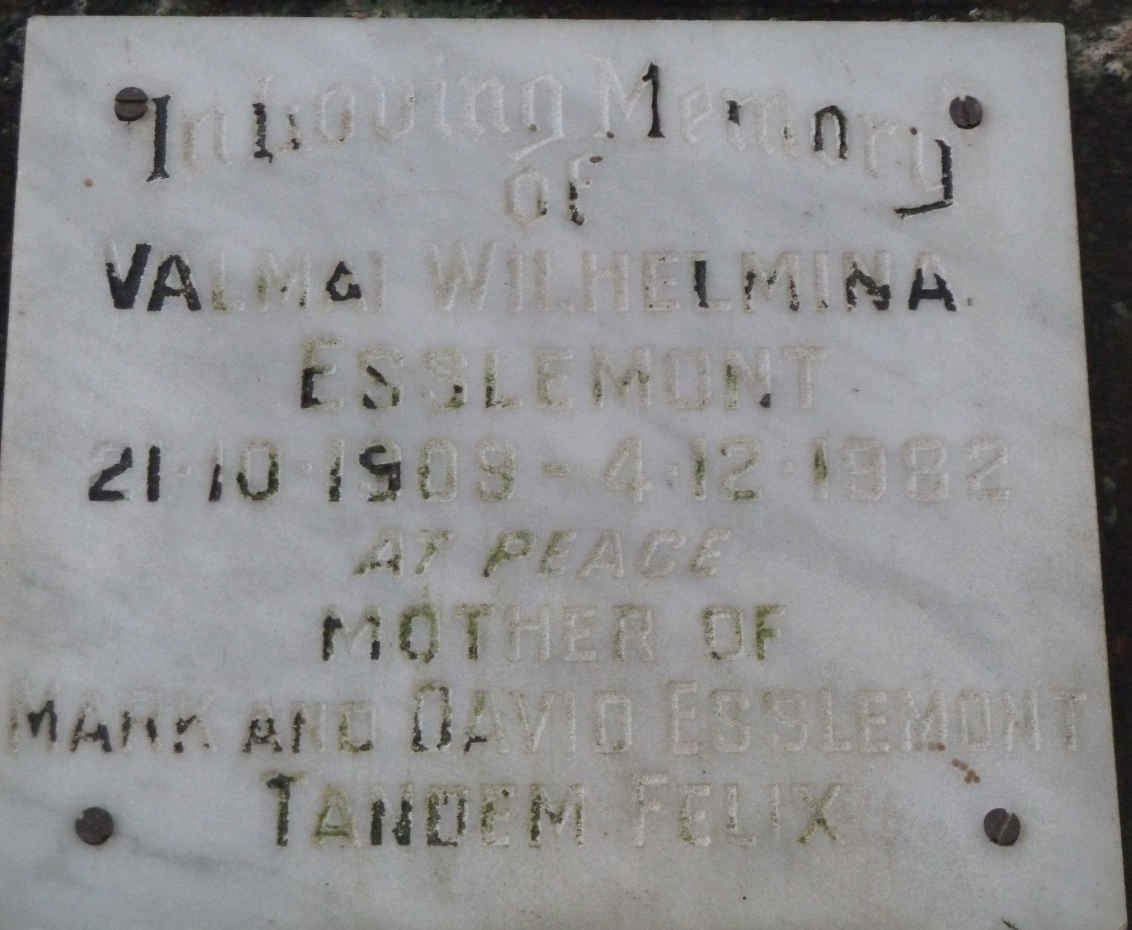 In Loving Memory
of
VALMAI WILHELMINA
ESSLEMONT
21·10·1909 - 4·12·1982
AT PEACE
MOTHER OF
MARK AND DAVID ESSLEMONT
TANDEM FELIX